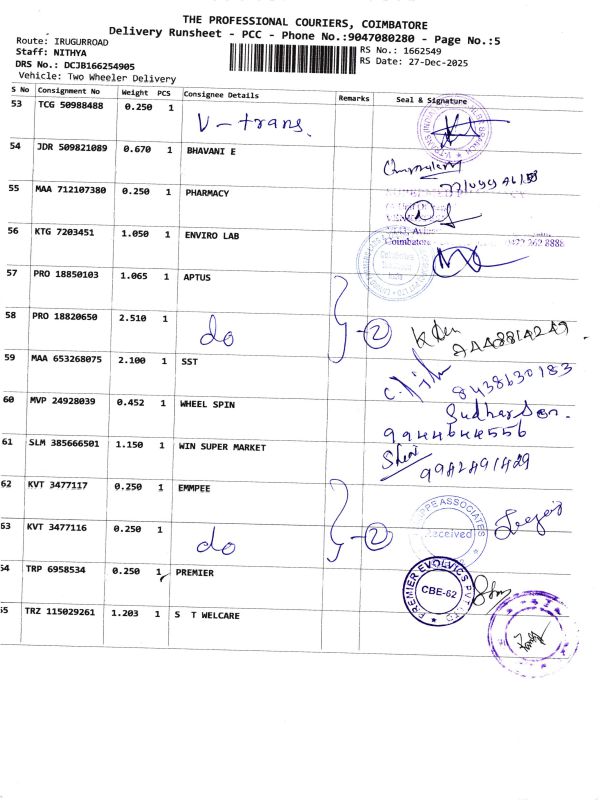 THE PROFESSIONAL COURIERS, COIMBATORE
Delivery Runsheet - PCC - Phone No.:9047080280 - Page No.:5
Route: IRUGURROAD
Staff: NITHYA
DRS No.: DCJB166254905
Vehicle: Two Wheeler Delivery
RS No.: 1662549
RS Date: 27-Dec-2025
S No Consignment No Weight PCS Consignee Details Remarks Seal & Signature
53 TCG 50988488 0.250 1 V-trans.
54 JDR 509821089 0.670 1 BHAVANI E
55 MAA 712107380 0.250 1 PHARMACY
56 KTG 7203451 1.050 1 ENVIRO LAB
Coimbatore 0422 262 8888
57 PRO 18850103 1.065 1 APTUS
58 PRO 18820650 2.510 1 do 2
59 MAA 653268075 2.100 1 SST
8438630183
60 MVP 24928039 0.452 1 WHEEL SPIN
9944644556
61 SLM 385666501 1.150 1 WIN SUPER MARKET
62 KVT 3477117 0.250 1 EMMPEE
63 KVT 3477116 0.250 1 do 2
ASSOCIATES
Received
54 TRP 6958534 0.250 1 PREMIER
PREMIER EVOLVICS PVT LTD
CBE-62
55 TRZ 115029261 1.203 1 S T WELCARE